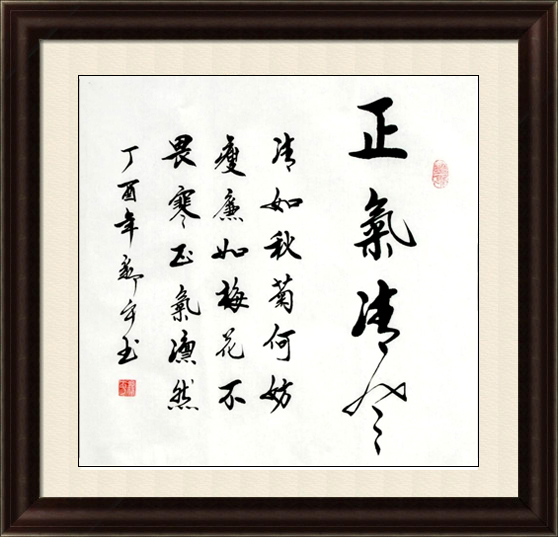 正氣清
清如秋菊何妨
瘦廉如梅花不
畏寒正氣凛然
丁酉年书